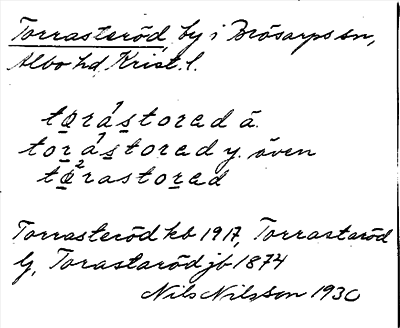 Torrasteröd, by i Brösarps sn,
Albo hd, Krist. l.
torástorad ä.
torástorad y. även
tò²rastorad
Torrasteröd kb 1917, Torrastaröd
Gj, Torastaröd jb 1874
Nils Nilsson 1930